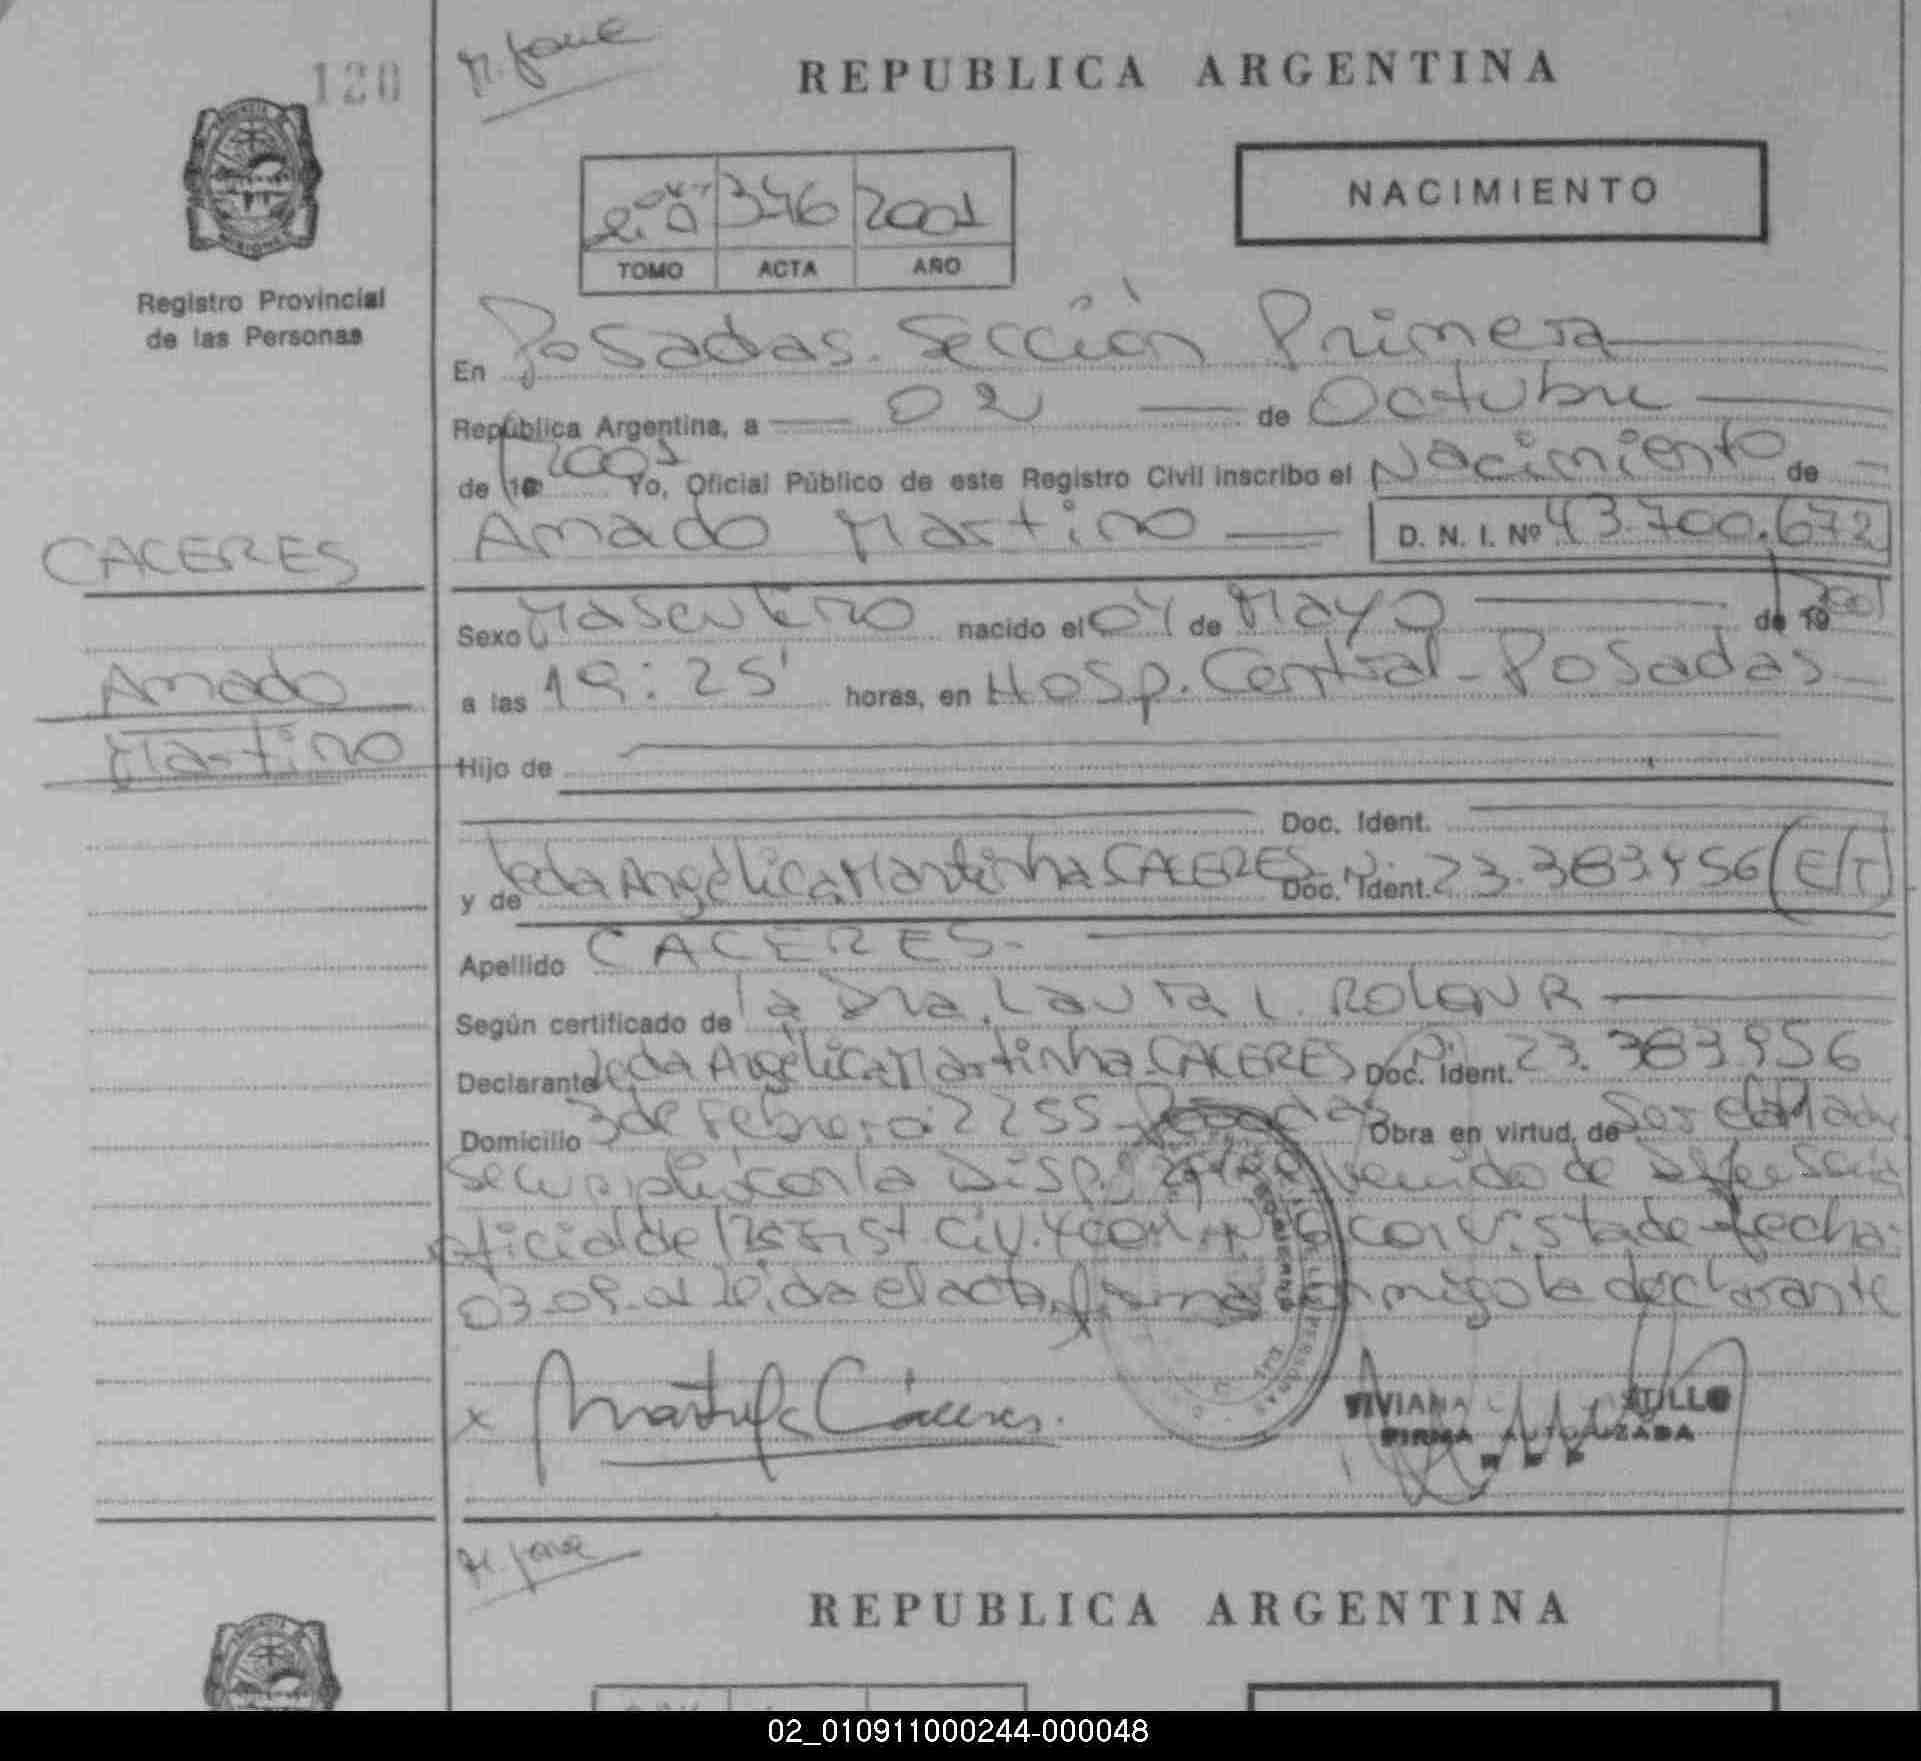 120
REPUBLICA ARGENTINA
NACIMIENTO
346 2001
TOMO ACTA AÑO
Registro Provincial
de las Personas
En Posadas. Sección Primera
República Argentina, a 02 de Octubre
de 19 2001 Yo, Oficial Público de este Registro Civil inscribo el Nacimiento de
Amado Martino D. N. I. Nº 43.700.672
CACERES
Amado
Martino
Sexo Masculino nacido el 04 de Mayo de 19 2001
a las 19:25' horas, en Hosp. Central - Posadas
Hijo de
Doc. Ident.
y de Angélica Martinha CACERES Doc. Ident. 23.383.956 (E/T)
Apellido CACERES.
Según certificado de la Dra. Laura L.
Declarante Angélica Martinha CACERES Doc. Ident. 23.383.956
Domicilio 3 de Febrero 2255 - Posadas Obra en virtud, de Ser la Madre
Se cumplió con la Disp. de
oficial de Civ. y Com. Nº con vista de fecha
03-09-01 leída el acta, firma conmigo la declarante
x Cáceres.
VIVIANA STILLO
FIRMA AUTORIZADA
REPUBLICA ARGENTINA
02_010911000244-000048